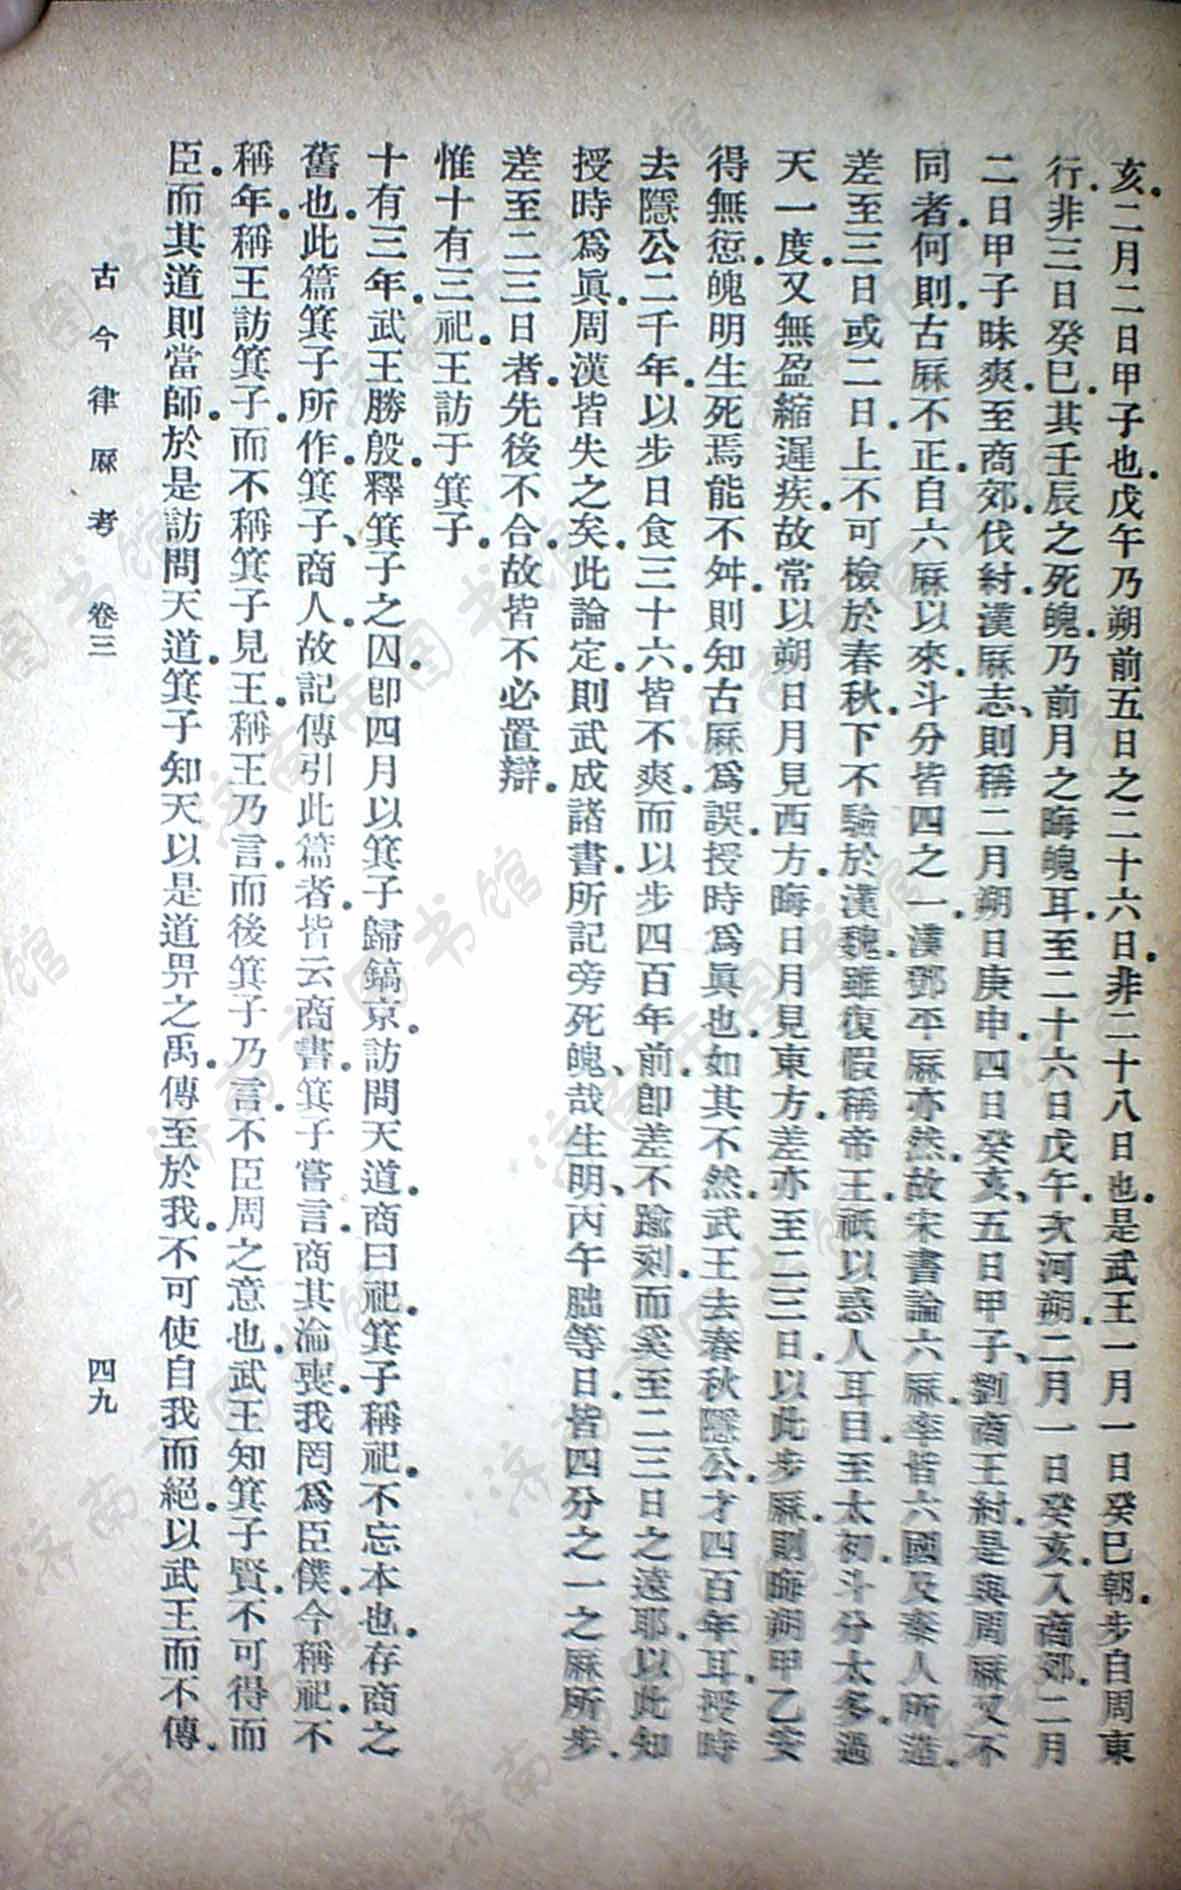 亥．二月二日甲子也．戊午乃朔前五日之二十六日．非二十八日也．是武王一月一日癸巳朝．步自周東
行．非三日癸巳．其壬辰之死魄．乃前月之晦魄耳．至二十六日戊午．次河朔．二月一日癸亥．入商郊．二月
二日甲子昧爽．至商郊．伐紂．漢厤志、則稱二月朔日庚申．四日癸亥、五日甲子、劉商王紂．是與周厤又不
同者．何則．古厤不正．自六厤以來．斗分皆四之一．漢鄧平厤亦然．故宋書論六厤．率皆六國及秦人所造．
差至三日或二日．上不可檢於春秋．下不驗於漢魏．雖復假稱帝王．祇以惑人耳目．至太初．斗分太多．過
天一度．又無盈縮遲疾．故常以朔日月見西方．晦日月見東方．差亦至二三日．以此步厤．則晦朔甲乙安
得無愆．魄明生死焉能不舛．則知古厤爲誤．授時爲眞也．如其不然．武王去春秋隱公．才四百年耳．授時
去隱公二千年．以步日食三十六．皆不爽．而以步四百年前．卽差不踰刻．而奚至二三日之遠耶．以此知
授時爲眞．周漢皆失之矣．此論定．則武成諸書．所記旁死魄、哉生明、丙午朏等日．皆四分之一之厤所步．
差至二三日者．先後不合．故皆不必置辯．
惟十有三祀．王訪于箕子．
十有三年．武王勝殷．釋箕子之囚．卽四月以箕子歸鎬京．訪問天道．商曰祀．箕子稱祀．不忘本也．存商之
舊也．此篇箕子所作．箕子、商人．故記傳引此篇者．皆云商書．箕子嘗言．商其淪喪．我罔爲臣僕．今稱祀．不
稱年．稱王訪箕子．而不稱箕子見王．稱王乃言．而後箕子乃言．不臣周之意也．武王知箕子賢．不可得而
臣．而其道則當師．於是訪問天道．箕子知天以是道畀之禹．傳至於我．不可使自我而絕．以武王而不傳．
古今律厤考　卷三　四九